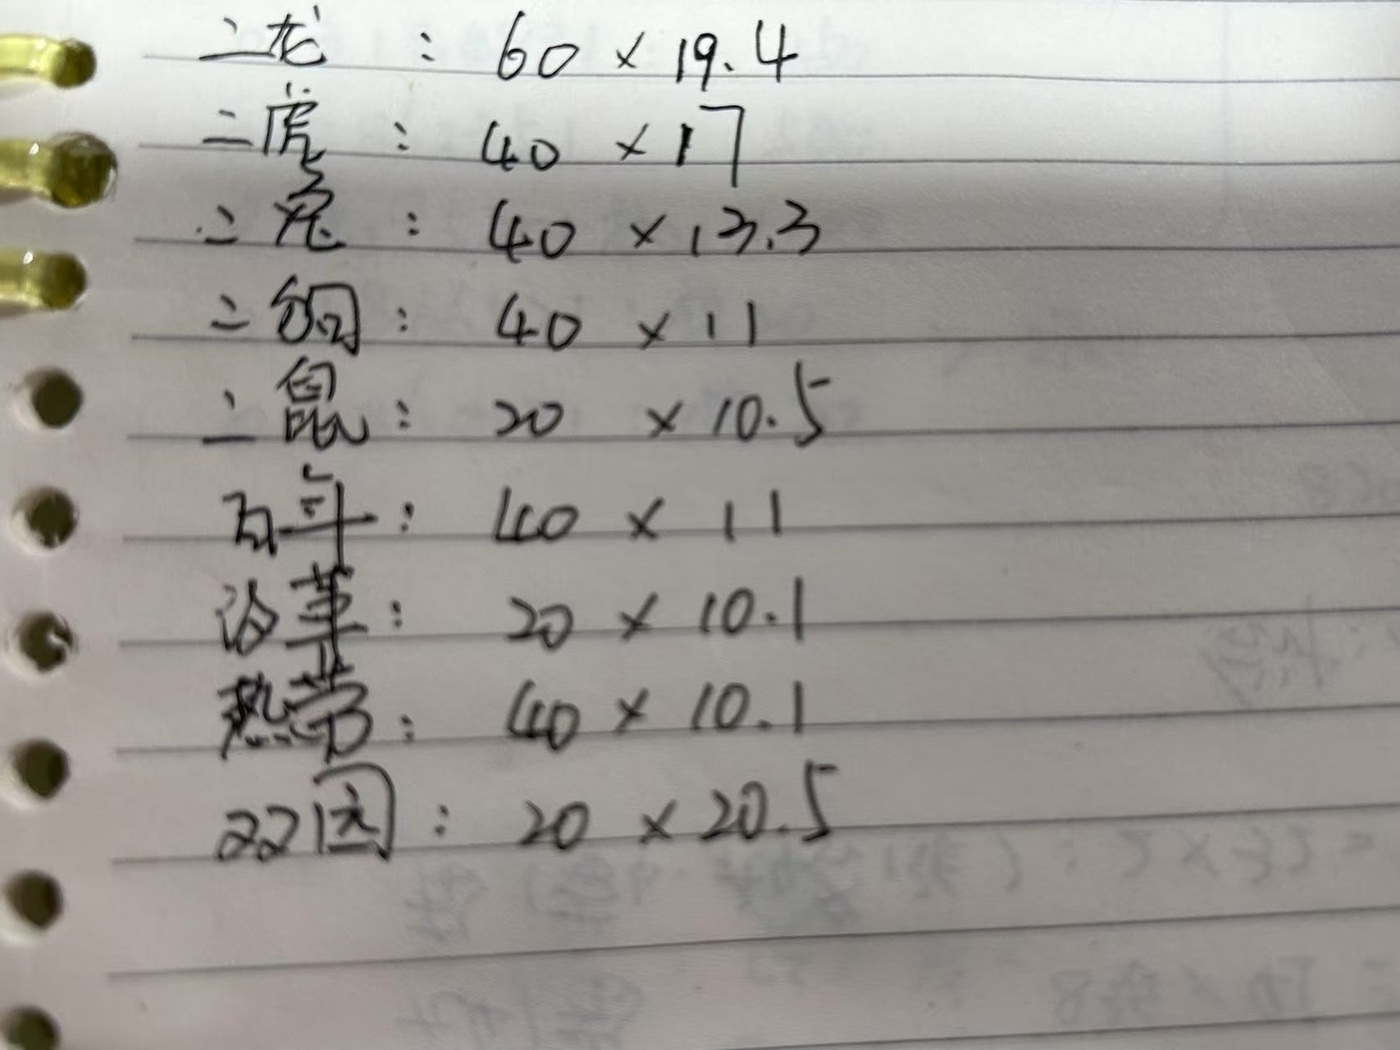 二龙：60×19.4
二虎：40×17
二兔：40×13.3
二铜：40×11
二鼠：20×10.5
百年：40×11
改革：20×10.1
热带：40×10.1
22国：20×20.5